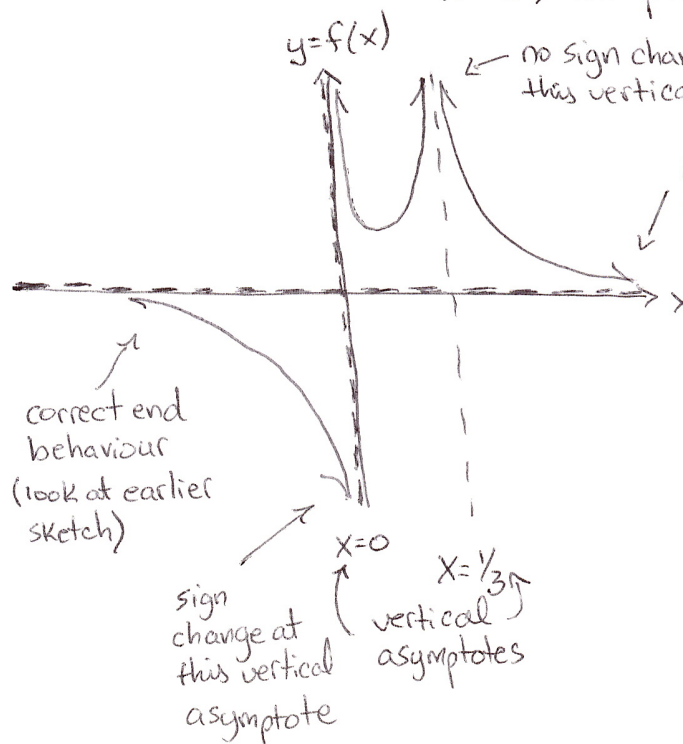 y=f(x)
no sign
this
x
correct end
behaviour
(look at earlier
sketch)
x=0
x=1/3
sign
change at
this vertical
asymptote
vertical
asymptotes